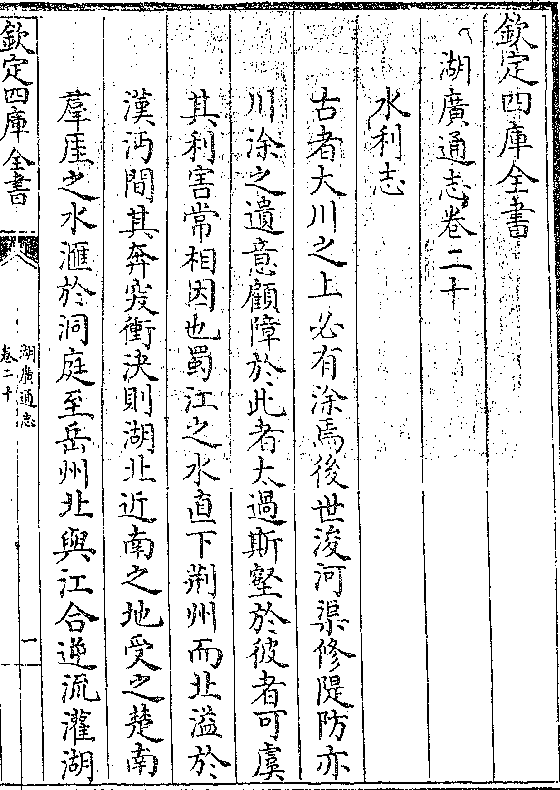 欽定四庫全書
湖廣通志卷二十
水利志
古者大川之上必有涂焉後世浚河渠修隄防亦
川涂之遺意顧障於此者太過斯壑於彼者可虞
其利害常相因也蜀江之水直下荆州而北溢於
漢沔間其奔突衝決則湖北近南之地受之楚南
羣厓之水滙於洞庭至岳州北與江合逆流灌湖
欽定四庫全書
湖廣通志
卷二十
一